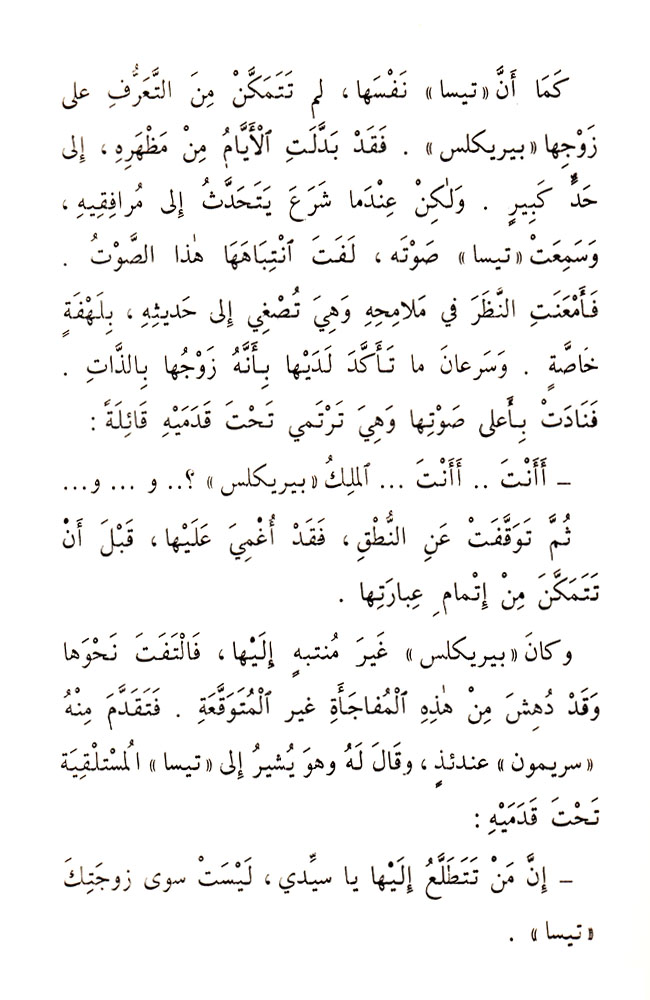 كَمَا أَنَّ «تيسا» نَفْسَها، لم تَتَمَكَّنْ مِنَ التَّعَرُّفِ على
زَوْجِها «بيريكلس» . فَقَدْ بَدَّلَتِ ٱلْأَيَّامُ مِنْ مَظْهَرِهِ، إلى
حَدٍّ كَبِيرٍ . وَلٰكِنْ عِنْدَما شَرَعَ يَتَحَدَّثُ إلى مُرافِقِيهِ،
وَسَمِعَتْ «تيسا» صَوْتَه، لَفَتَ ٱنْتِبَاهَهَا هٰذا الصَّوْتُ .
فَأَمْعَنَتِ النَّظَرَ في مَلامِحِهِ وَهِيَ تُصْغِي إلى حَديثِهِ، بِلَهْفَةٍ
خَاصَّةٍ . وَسَرعانَ ما تَأَكَّدَ لَدَيْها بِأَنَّهُ زَوْجُها بِالذَّاتِ .
فَنَادَتْ بِأَعلى صَوْتِها وَهِيَ تَرْتَمي تَحْتَ قَدَمَيْهِ قَائِلَةً :
– أَأَنْتَ .. أَأَنْتَ ... ٱلملِكُ «بيريكلس» ؟.. و ... و...
ثُمَّ تَوَقَّفَتْ عَنِ النُّطْقِ، فَقَدْ أُغْمِيَ عَلَيْها، قَبْلَ أَنْ
تَتَمَكَّنَ مِنْ إِتْمامِ عِبارَتِها .
وكانَ «بيريكلس» غَيرَ مُنتبهٍ إِلَيْها، فَالْتَفَتَ نَحْوَها
وَقَدْ دُهِشَ مِنْ هٰذِهِ ٱلْمُفاجَأَةِ غيرِ ٱلْمُتَوَقَّعَةِ . فَتَقَدَّمَ مِنْهُ
«سريمون» عندئذٍ، وقَالَ لَهُ وهوَ يُشيرُ إلى «تيسا» المُسْتلْقِيَة
تَحْتَ قَدَمَيْهِ :
– إِنَّ مَنْ تَتَطَلَّعُ إِلَيْها يا سيِّدي، لَيْسَتْ سوى زوجَتِكَ
«تيسا» .